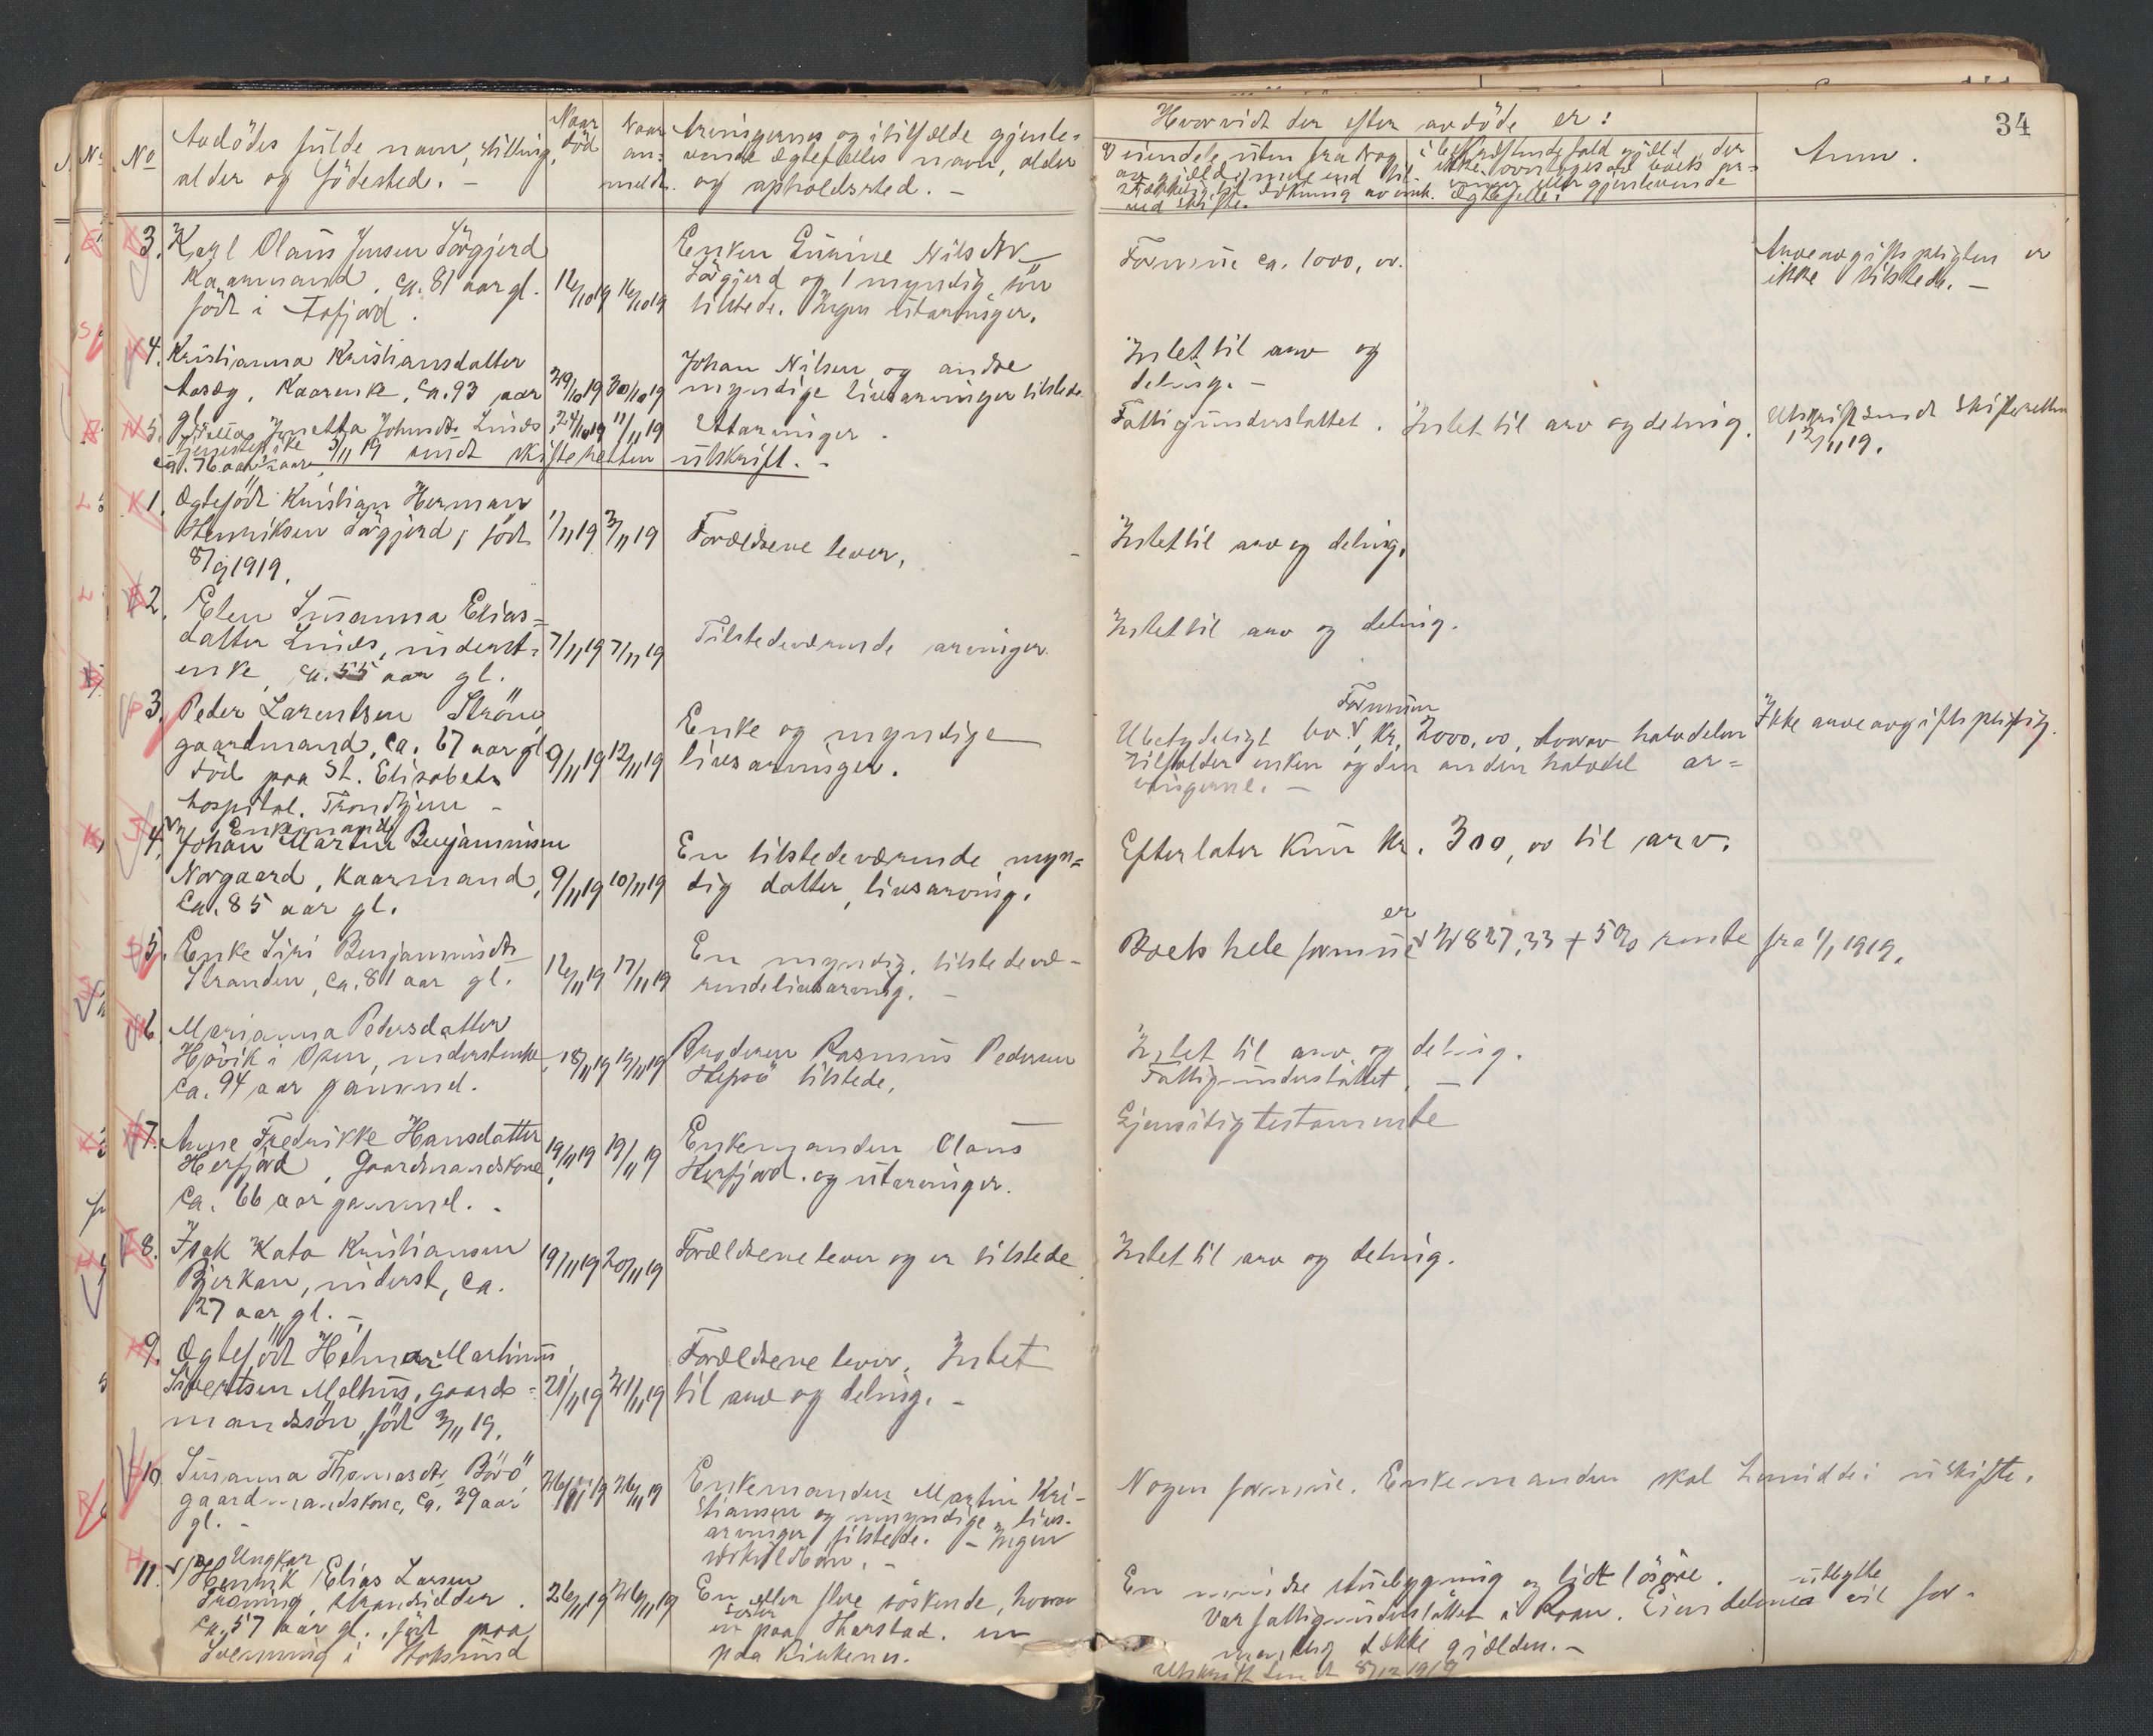 34
No
Avdödes fulde navn, stilling,
alder og födested. -
Naar
död
Naar
an-
meldt.
Arvingernes og i tilfælde gjenle-
vende ægtefælles navn, alder
og opholdssted. -
Hvorvidt der efter avdöde er:
ved skifte.
ægtefælle.
Anm.
3. Karl Olaus Jensen Sörgjerd
Kaarmand, ca. 81 aar gl.
födt i Aafjord.
12/10 19
16/10 19
Enken Elline Nilsdtr
Sörgjerd og 1 myndig sön
tilstede. Ingen utarvinger.
Formue ca. 1000,00.
Arveavgiftspligten er
ikke tilstede. -
4. Kristianna Kristiansdatter
Aasæg, Kaarenke, ca. 93 aar
gl.
29/10 19
30/10 19
Johan Nilsen og andre
myndige livsarvinger tilstede
Intet til arv og
deling. -
5. Jonetta Johnsdtr. Linæs
tjenestepike
ca. 76 aar
24/10 19
1/11 19
Utarvinger.
Fattigunderstöttet. Intet til arv og deling.
Utskrift sendt skifteretten
12/11 19.
3/11 19 sendt skifteretten utskrift. -
1. Ægtefödt Kristian Herman
Henriksen Sörgjerd, födt
8/9 1919.
1/11 19
3/11 19
Forældrene lever.
Intet til arv og deling.
2. Elen Susanna Elias-
datter Linæs, inderst-
enke, ca. 55 aar gl.
7/11 19
7/11 19
Tilstedeværende arvinger.
Intet til arv og deling.
3. Peder Larentsen Ström,
gaardmand, ca. 67 aar gl
död paa St. Elisabets
hospital. Trondhjem -
9/11 19
12/11 19
Enke og myndige
livsarvinger.
Formue
Ubetydeligt bo. Kr. 2000,00, hvorav halvdelen
tilfalder enken og den anden halvdel ar-
vingerne. -
Ikke arveavgiftspligtig.
4. Enkemand
Johan Martin Benjaminsen
Norgaard, Kaarmand,
ca. 85 aar gl.
9/11 19
10/11 19
En tilstedeværende myn-
dig datter, livsarving.
Efterlater kun kr. 300,00 til arv.
5. Enke Siri Benjaminsdtr
Stranden, ca. 81 aar gl.
12/11 19
17/11 19
En myndig, tilstedevæ-
rende livsarving. -
er
Boets hele formue 827,33 + 5% rente fra 1/1 1919.
6. Marianna Pedersdatter
Hövik i Osen, inderstenke,
ca. 94 aar gammel.
18/11 19
19/11 19
Broderen Rasmus Pedersen
Hepsö tilstede.
Intet til arv og deling.
Fattigunderstöttet. -
7. Anne Fredrikke Hansdatter
Herfjord, Gaardmandskone,
ca. 66 aar gammel. -
19/11 19
19/11 19
Enkemanden Olaus
Herfjord. og utarvinger.
Gjensidig testamente
8. Isak Kato Kristiansen
Bjerkan, inderst, ca.
27 aar gl. -
19/11 19
20/11 19
Forældrene lever og er tilstede
Intet til arv og deling.
9. Ægtefödt Helmer Martinus
Sivertsen Melhus, gaard-
mandssön, födt 3/11 19.
21/11 19
21/11 19
Forældrene lever. Intet
til arv og deling. -
10. Susanna Thomasdtr. Börö
gaardmandskone, ca. 39 aar
gl. -
26/11 19
26/11 19
Enkemanden Martin Kri-
stiansen og umyndige livs-
arvinger tilstede. - Ingen
særkuldbarn. -
Nogen formue. Enkemanden skal hensidde i uskifte.
11. Ungkar
Henrik Elias Larsen
Froming, strandsidder.
ca. 57 aar gl., födt paa
i Stoksund
26/11 19
26/11 19
En eller flere söskende, hvorav
söster
en paa Harstad. en
paa Kirkenes.
En mindre stuebygning og lidt lösöre.
Var fattigunderstöttet i Roan. Eiendelenes utbytte vil for-
mentlig dække gjælden. -
Utskrift sendt 8/12 1919